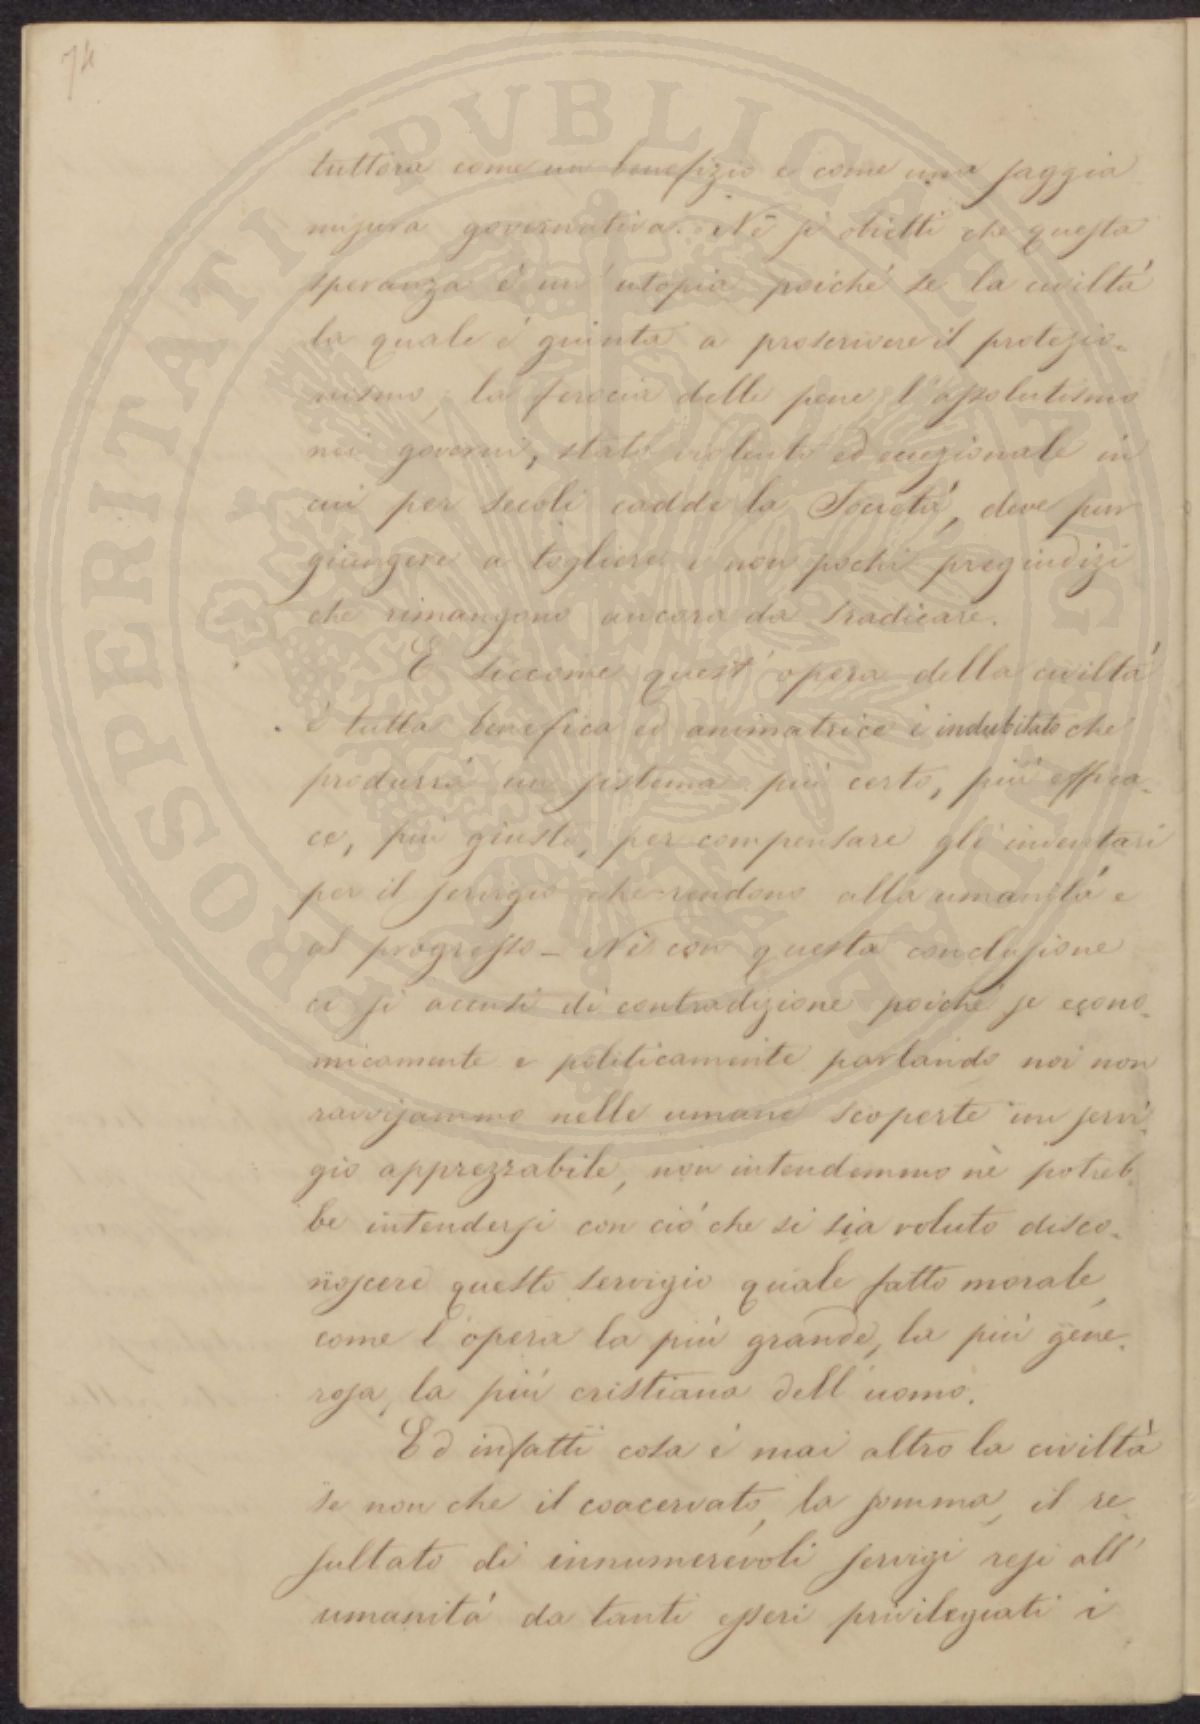 74
tuttora come un benefizio e come una saggia
misura governativa. Nè si obietti che questa
speranza è un' utopia poiché se la civiltà
la quale è giunta a proscrivere il protezio-
nismo, la ferocia delle pene l'assolutismo
nei governi, stato violento ed eccezionale in
cui per secoli cadde la Società, deve pur
giungere a togliere i non pochi pregiudizi
che rimangono ancora da sradicare.
E siccome quest' opera della civiltà
è tutta benefica ed animatrice è indubitato che
produrrà un sistema più certo, più effica-
ce, più giusto, per compensare gli inventori
per il servigio che rendono alla umanità e
al progresso - Nè con questa conclusione
ci si accusi di contradizione poiché se econo-
micamente e politicamente parlando noi non
ravvisammo nelle umane scoperte un servi-
gio apprezzabile, non intendemmo nè potreb-
be intendersi con ciò che si sia voluto disco-
noscere questo servigio quale fatto morale,
come l'opera la più grande, la più gene-
rosa, la più cristiana dell'uomo.
Ed infatti cosa è mai altro la civiltà
se non che il coacervato, la somma, il re-
sultato di innumerevoli servigi resi all'
umanità da tanti esseri privilegiati i
PROSPERITATI PVBLICAE AVGENDAE